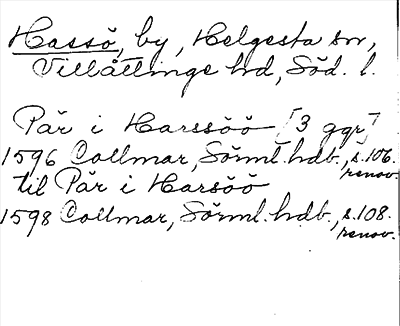 Hassö, by, Helgesta sn,
Villåttinge hd, Söd. l.
Pär i Harssöö [3 ggr]
1596 Collmar, Sörml. hdb., s. 106.
renov.
til Pär i Harsöö
1598 Collmar, Sörml. hdb., s. 108.
renov.